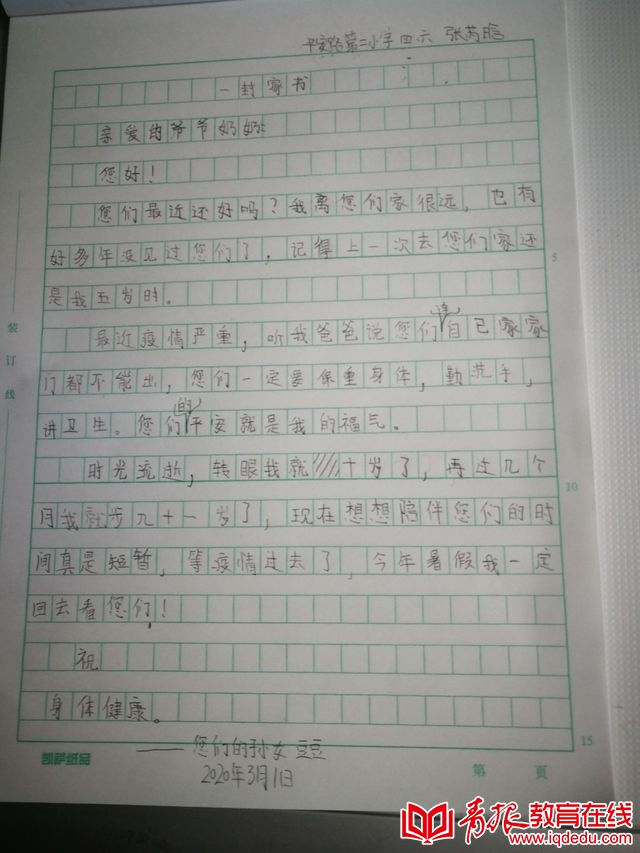 平安路第二小学 四六 张芮晗
一封家书
亲爱的爷爷奶奶:
您好!
您们最近还好吗?我离您们家很远,也有
好多年没见过您们了,记得上一次去您们家还
是我五岁时。
最近疫情严重,听我爸爸说您们连自己家家
门都不能出,您们一定要保重身体,勤洗手,
讲卫生。您们的平安就是我的福气。
时光流逝,转眼我就十岁了,再过几个
月我就步入十一岁了,现在想想陪伴您们的时
间真是短暂,等疫情过去了,今年暑假我一定
回去看您们!
祝
身体健康。
——您们的孙女 豆豆
2020年3月1日
装订线
5
10
15
凯萨纸品
第 页
青报教育在线
www.iqdedu.com